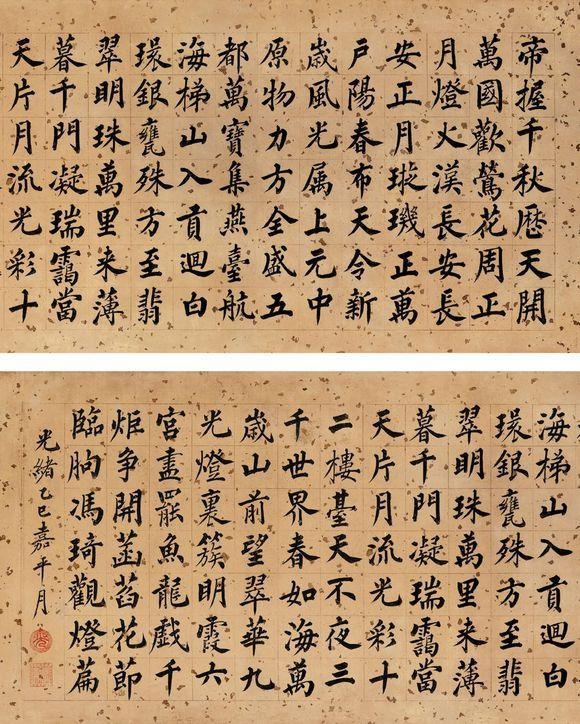 帝握千秋歴天開
萬國歡鶯花周正
月燈火漠長安長
安正月璇璣正萬
戸陽春布天令新
歲風光属上元中
原物力方全盛五
都萬寶集燕臺航
海梯山入貢迴白
環銀甕殊方至翡
翠明珠萬里来薄
暮千門凝瑞靄當
天片月流光彩十
海梯山入貢迴白
環銀甕殊方至翡
翠明珠萬里来薄
暮千門凝瑞靄當
天片月流光彩十
二樓臺天不夜三
千世界春如海萬
歲山前望翠華九
光燈裏簇明霞六
宮盡罷魚龍戲千
炬争開菡萏花節
臨朐馮琦觀燈篇
光緒乙巳嘉平月